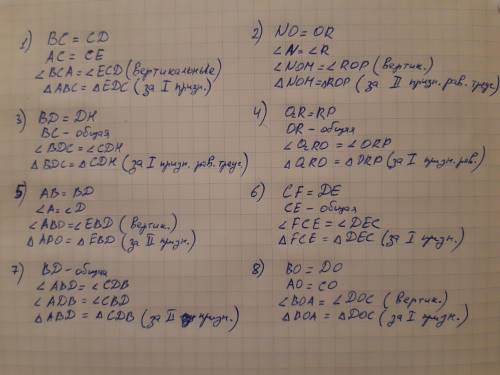 1) BC = CD
AC = CE
∠BCA = ∠ECD (вертикальные)
△ABC = △EDC (за I призн.)
2) NO = OR
∠N = ∠R
∠NOM = ∠ROP (вертик.)
△NOM = △ROP (за II призн. рав. треуг)
3) BD = DH
BC - общая
∠BDC = ∠CDH
△BDC = △CDH (за I призн. рав. треуг)
4) QR = RP
OR - общая
∠QRO = ∠ORP
△QRO = △ORP (за I призн. рав.)
5) AB = BD
∠A = ∠D
∠ABO = ∠EBD (вертик.)
△APO = △EBD (за II призн.)
6) CF = DE
CE - общая
∠FCE = ∠DEC
△FCE = △DEC (за I призн.)
7) BD - общая
∠ABD = ∠CDB
∠ADB = ∠CBD
△ABD = △CDB (за II призн.)
8) BO = DO
AO = CO
∠BOA = ∠DOC (вертик.)
△BOA = △DOC (за I призн.)